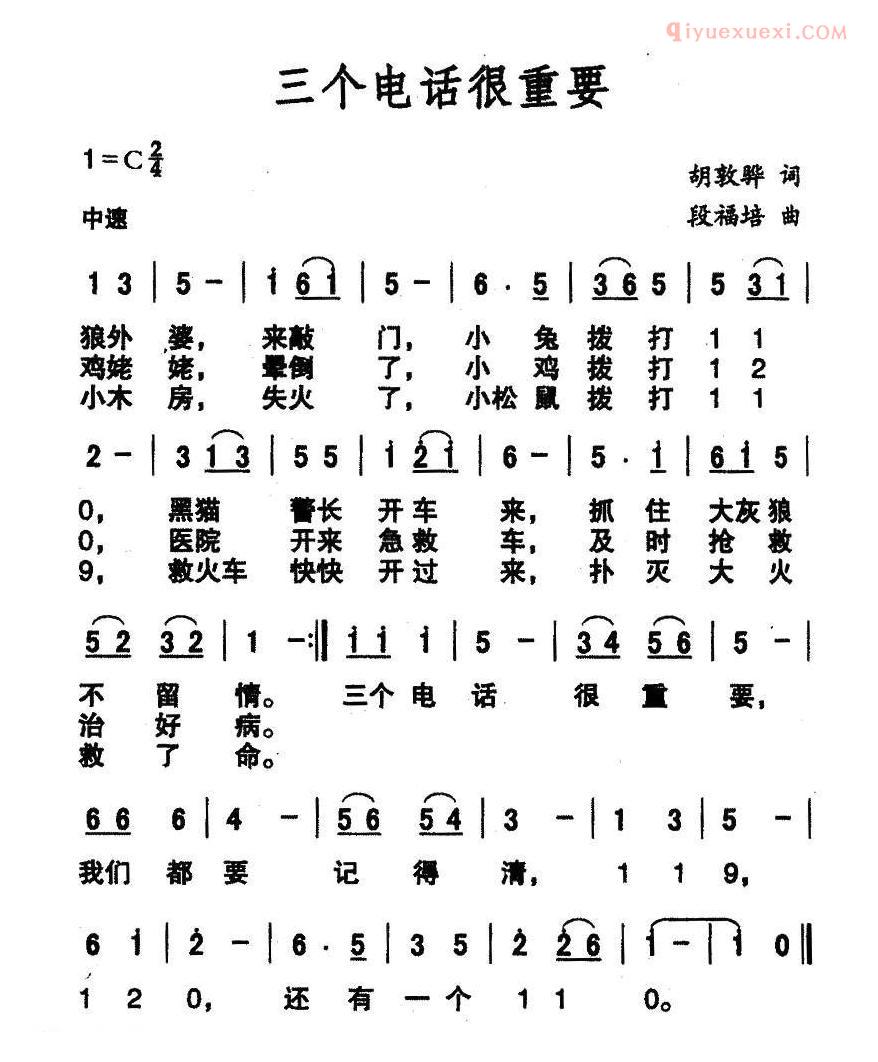 qiyuexuexi.COM
三个电话很重要
1=C 2/4
胡敦骅 词
中速
段福培 曲
1 3 | 5 - | i 6 1 | 5 - | 6 . 5 | 3 6 5 | 5 3 1 |
狼外 婆, 来敲 门, 小 兔 拨 打 1 1
鸡姥 姥, 晕倒 了, 小 鸡 拨 打 1 2
小木 房, 失火 了, 小松 鼠 拨 打 1 1
2 - | 3 1 3 | 5 5 | i 2 i | 6 - | 5 . i | 6 i 5 |
0, 黑猫 警长 开车 来, 抓 住 大灰狼
0, 医院 开来 急救 车, 及 时 抢 救
9, 救火车 快快 开过 来, 扑 灭 大 火
5 2 3 2 | 1 - :|| i i i | 5 - | 3 4 5 6 | 5 - |
不 留 情。 三个 电 话 很 重 要,
治 好 病。
救 了 命。
6 6 6 | 4 - | 5 6 5 4 | 3 - | 1 3 | 5 - |
我们 都 要 记 得 清, 1 1 9,
6 i | 2 - | 6 . 5 | 3 5 | 2 2 6 | i - | i 0 ||
1 2 0, 还 有 一 个 1 1 0。